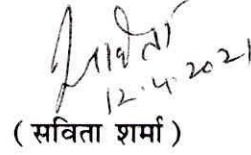 12.4.2021
( सविता शर्मा )